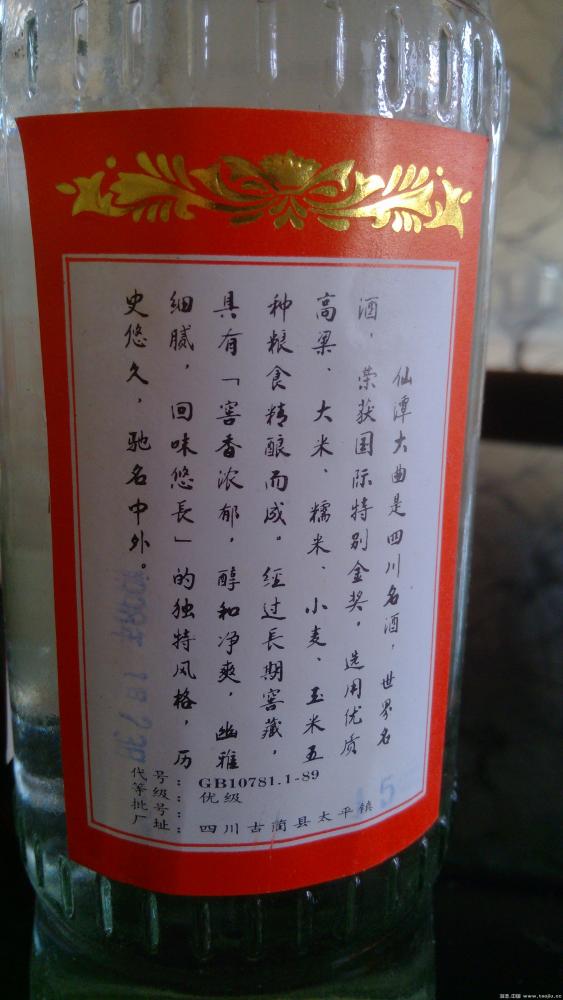 仙潭大曲是四川名酒,世界名
酒,荣获国际特别金奖,选用优质
高粱、大米、糯米、小麦、玉米五
种粮食精酿而成。经过長期窖藏,
具有「窖香浓郁,醇和净爽,幽雅
细腻,回味悠長」的独特风格,历
史悠久,驰名中外。
代号:GB10781.1-89
等级:优级
批号:
厂址:四川古蔺县太平镇
www.taojiu.cc